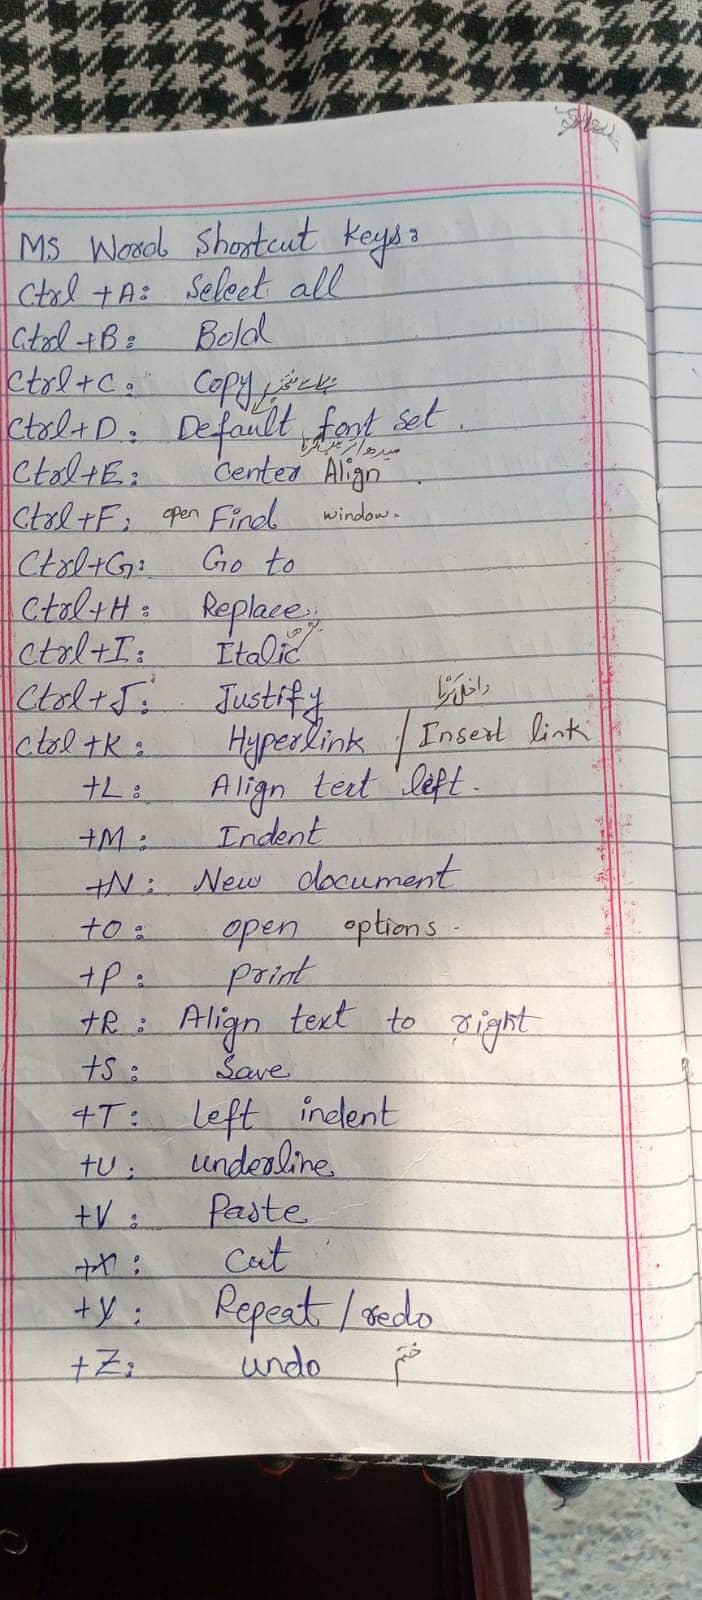 MS Word Shortcut Keys:
Ctrl +A: Select all
Ctrl +B: Bold
Ctrl +C: Copy
Ctrl +D: Default font set.
Ctrl +E: Center Align.
Ctrl +F: open Find window.
Ctrl+G: Go to
Ctrl+H: Replace
Ctrl+I: Italic
Ctrl+J: Justify
داخل کرنا
Ctrl +K: Hyperlink / Insert link
+L: Align text left.
+M: Indent
+N: New document
+O: open options.
+P: print
+R: Align text to right
+S: Save
+T: Left indent
+U: underline
+V: Paste
+X: Cut
+Y: Repeat / redo
+Z: undo ختم